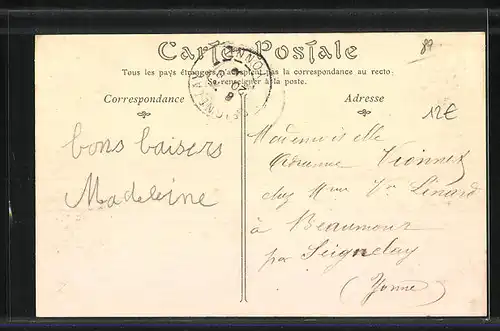 Carte Postale
89
Tous les pays étrangers n'acceptent pas la correspondance au recto:
Se renseigner à la poste.
Correspondance
Adresse
12€
bons baisers
Madeleine
Mademoiselle
Adrienne Vionnet
chez Mme Vve Linard
à Beaumont
par Seignelay
(Yonne)